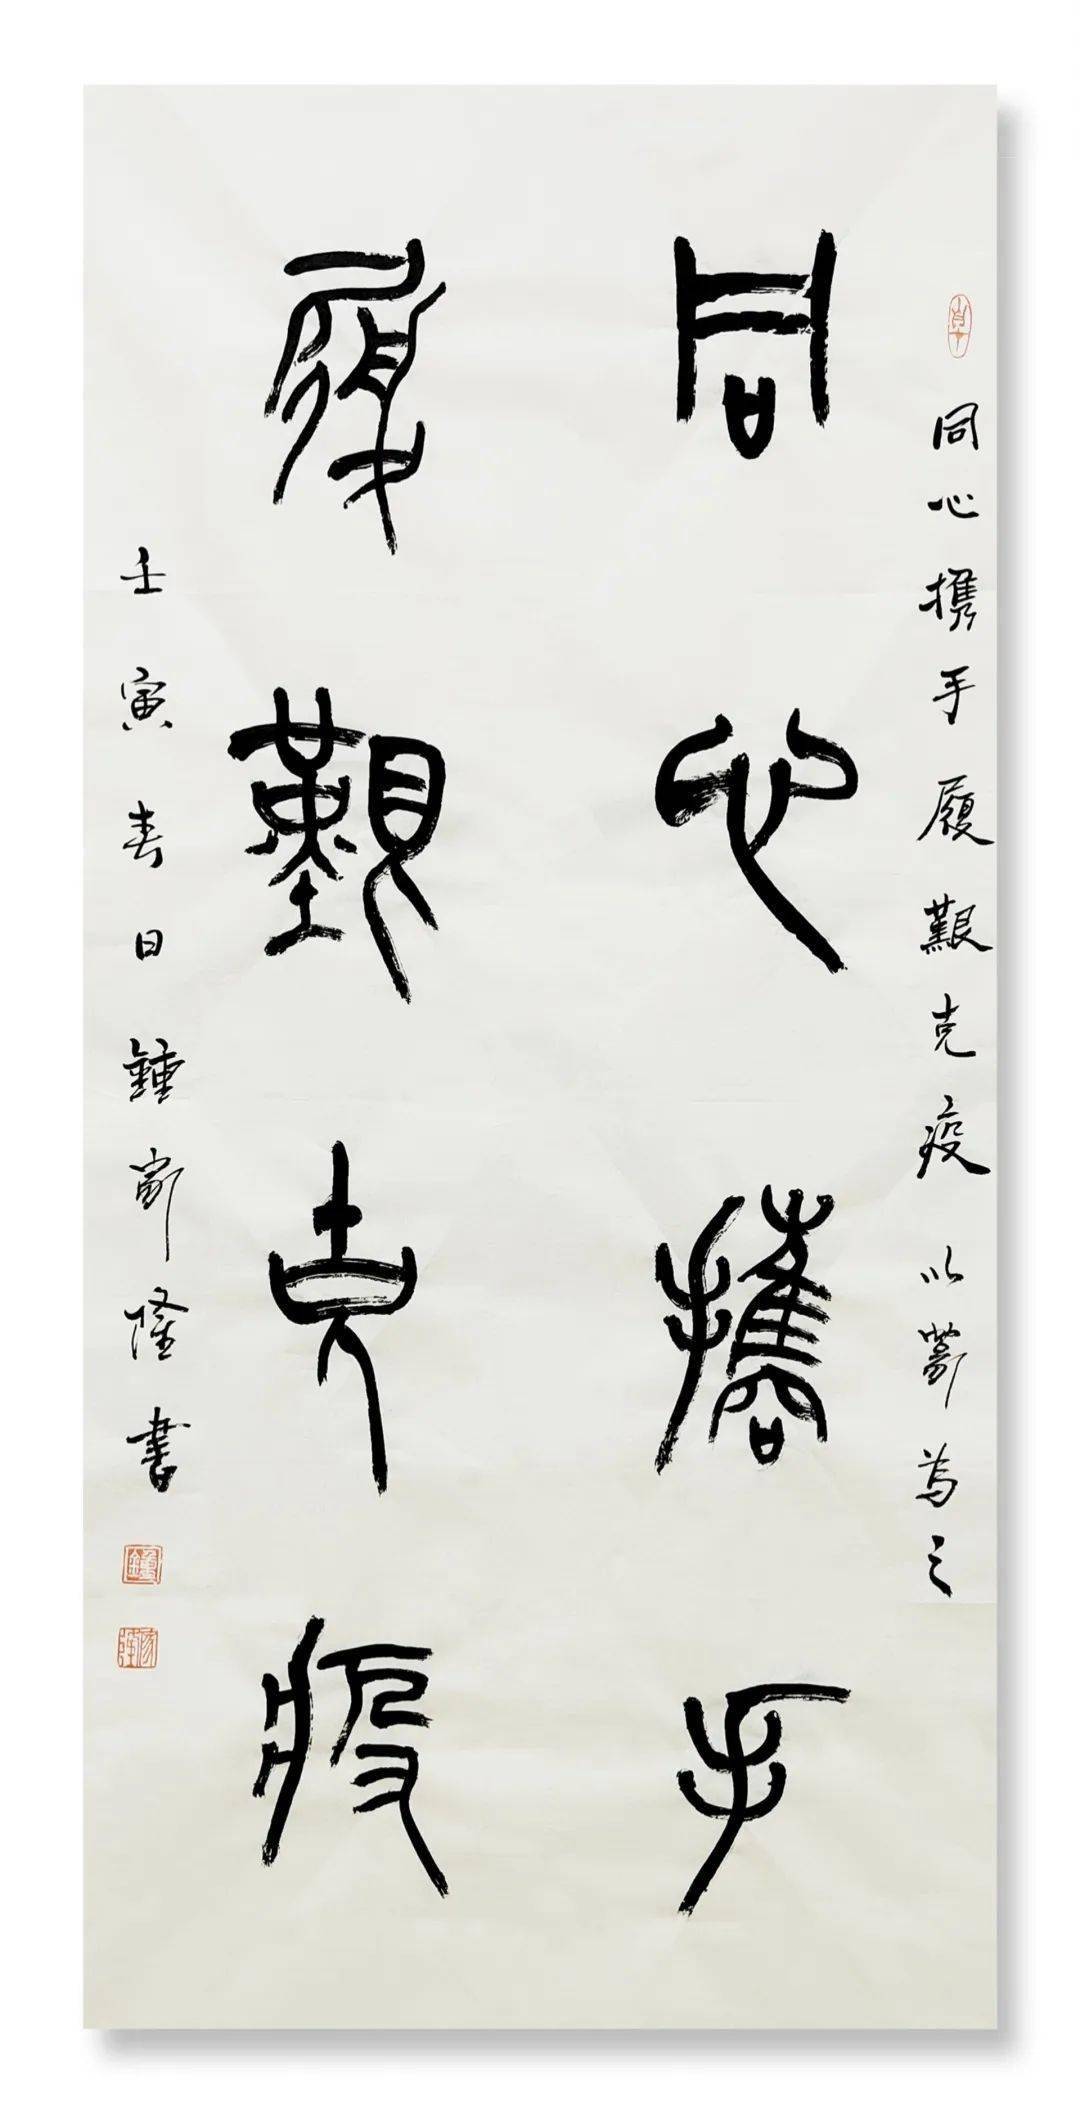 同心携手履艱克疫 以篆為之
同心攜手
履艱克疫
壬寅春日鍾家隆書